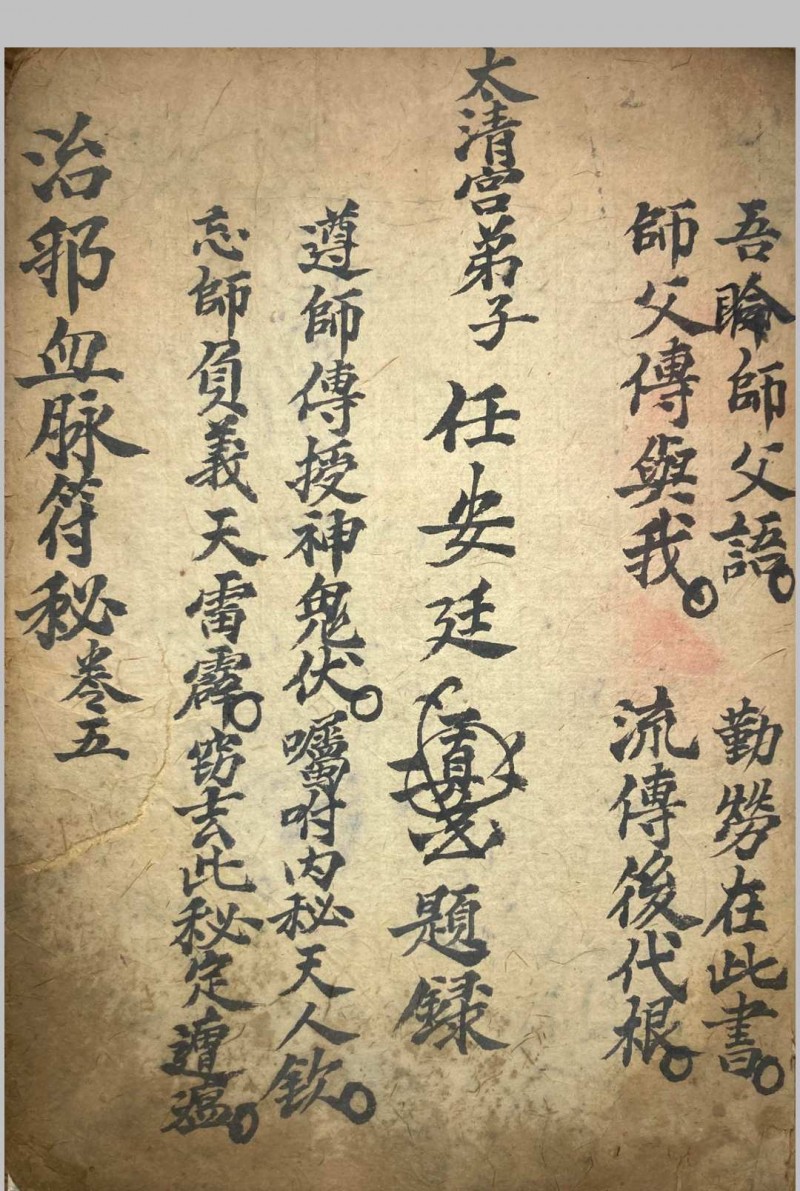 吾聆師父語。勤勞在此書。
師父傳與我。流傳後代根。
太清宮弟子 任安廷 題録
遵師傳授神鬼伏。囑咐内秘天人欽。
忘師負義天雷霹。窃去此秘定遭瘟。
治邪血脉符秘卷五